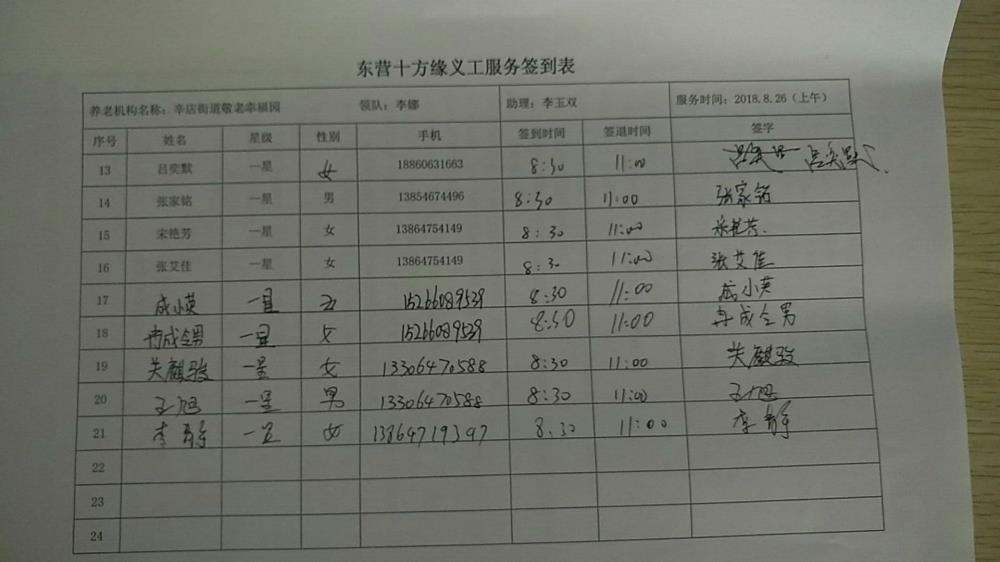 东营十方缘义工服务签到表
养老机构名称：辛店街道敬老幸福园 领队：李娜 助理：李玉双 服务时间：2018.8.26（上午）
序号 姓名 星级 性别 手机 签到时间 签退时间 签字
13 吕奕默 一星 女 18860631663 8:30 11:00 吕奕默
14 张家铭 一星 男 13854674496 8:30 11:00 张家铭
15 宋艳芳 一星 女 13864754149 8:30 11:00 宋艳芳
16 张艾佳 一星 女 13864754149 8:30 11:00 张艾佳
17 成小英 一星 女 15266089539 8:30 11:00 成小英
18 冉成全男 一星 女 15266089539 8:30 11:00 冉成全男
19 关麒骏 一星 女 13306470588 8:30 11:00 关麒骏
20 王旭 一星 男 13306470588 8:30 11:00 王旭
21 李静 一星 女 13864719397 8.30 11:00 李静
22
23
24